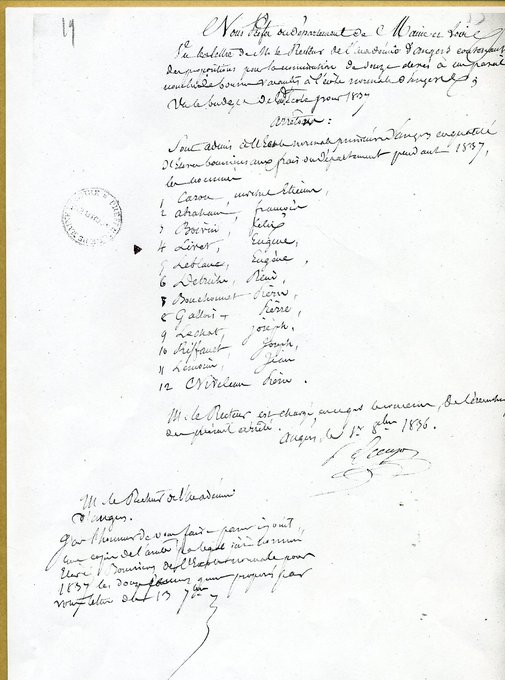 19
Nous Préfet du département de Maine et Loire
Vu la lettre de M. le Recteur de l'académie d'angers contenant
des propositions pour la nomination de douze élèves à un pareil
nombre de bourses vacantes à l'école normale d'angers
Vu le budget de l'Ecole pour 1837
arrêtons :
Sont admis à l'Ecole normale primaire d'angers en qualité
d'Elèves boursiers aux frais du département pendant 1837,
les nommés
1 Caron, Etienne,
2 abraham, françois
3 Boivin, félix
4 Livet, Eugène,
5 Leblanc, Eugène,
6 René,
7 Bouchonnet Pierre,
8 Gallois Pierre,
9 Lechat, joseph,
10 Joseph,
11 Lemoine, Jean
12 Pierre.
M. le Recteur est chargé de l'exécution
du présent arrêté. Angers, le 1er 8bre 1836.
M. le Recteur de l'académie
d'angers.
J'ai l'honneur de vous faire parvenir
une copie de l'arrêté
Elèves Boursiers de l'Ecole normale pour
1837 les douze proposés par
votre lettre du 13 7bre